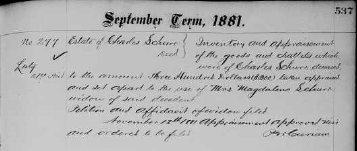 537
September Term, 1881.
No 277 Estate of Charles Schurr } Inventory and Appraisement
Decd } of the goods and chattels which
were of Charles Schurr deceased,
to the amount Three Hundred Dollars ($300) taken appraised
and set apart to the use of Mrs Magdalena Schurr
widow of said decedent
Petition and Affidavit of widow filed
November 12th 1881 Appraisement Approved Nisi
and ordered to be filed Per Curiam